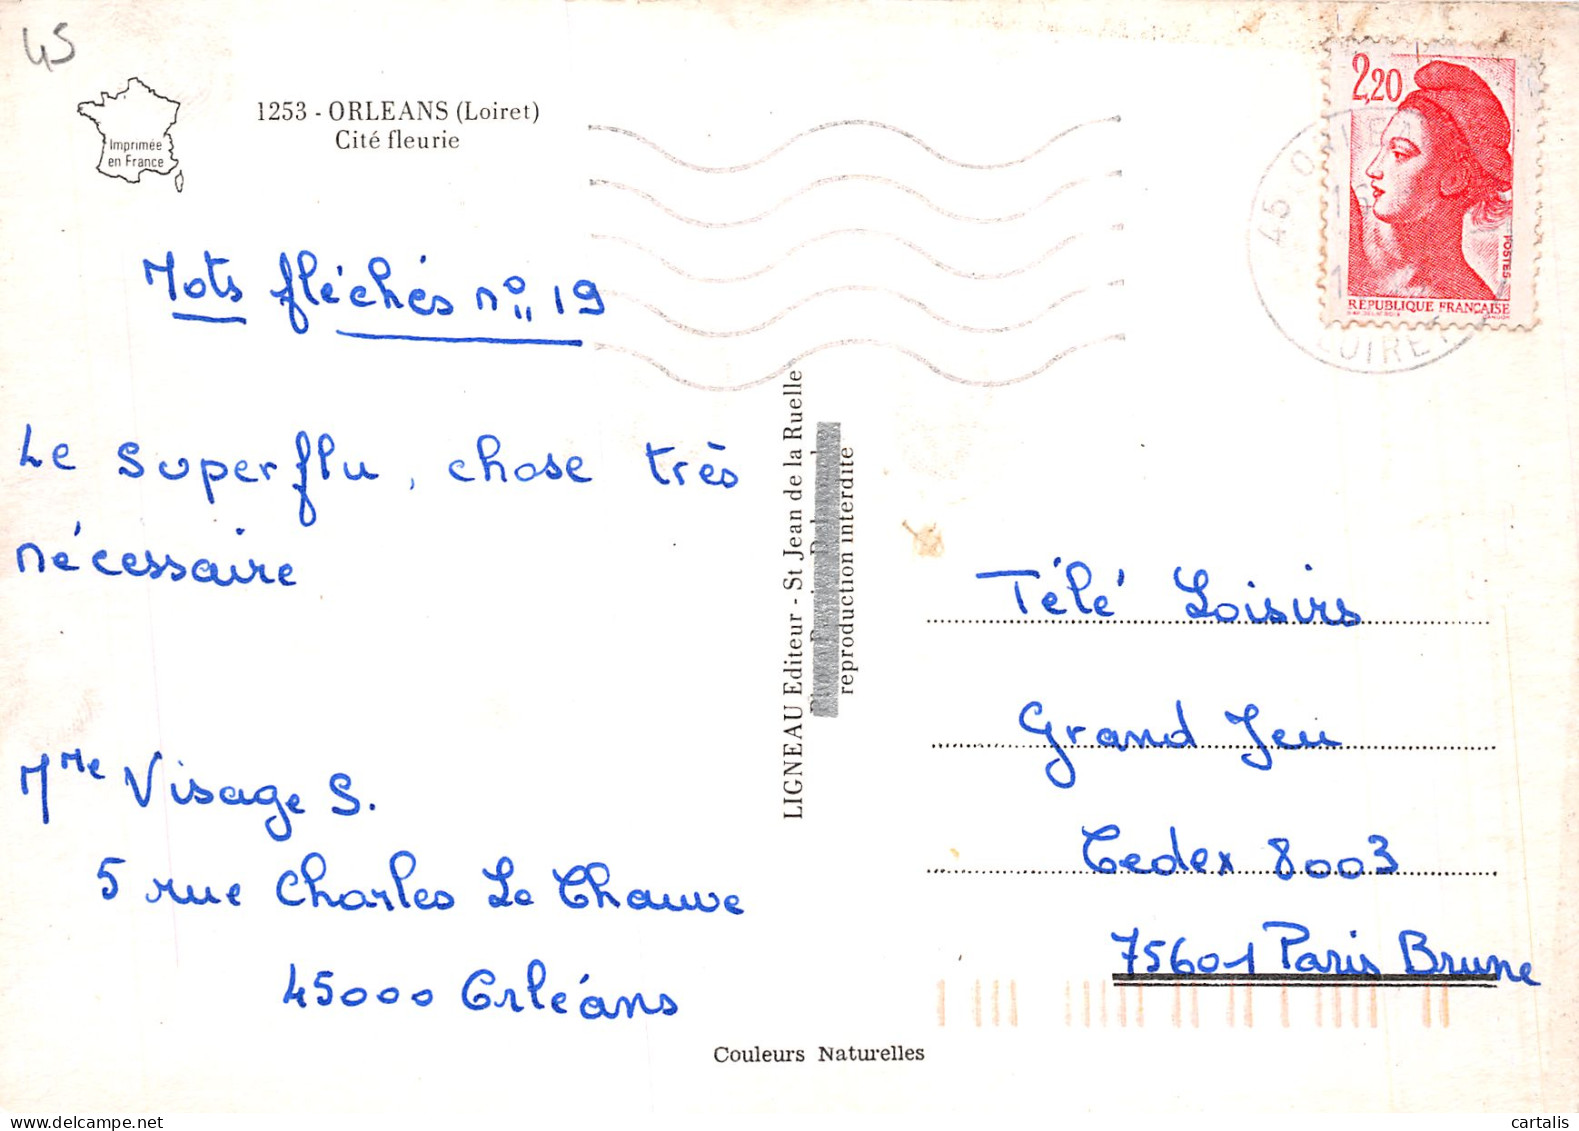 45
Imprimée
en France
1253 - ORLEANS (Loiret)
Cité fleurie
2,20
POSTES
REPUBLIQUE FRANÇAISE
45
LOIRET
Mots fléchés no 19
Le superflu, chose très
nécessaire
Mme Visage S.
5 rue Charles Le Chauve
45000 Orléans
LIGNEAU Editeur - St Jean de la Ruelle
reproduction interdite
Télé Loisirs
Grand Jeu
Cedex 8003
75601 Paris Brune
Couleurs Naturelles
cartalis